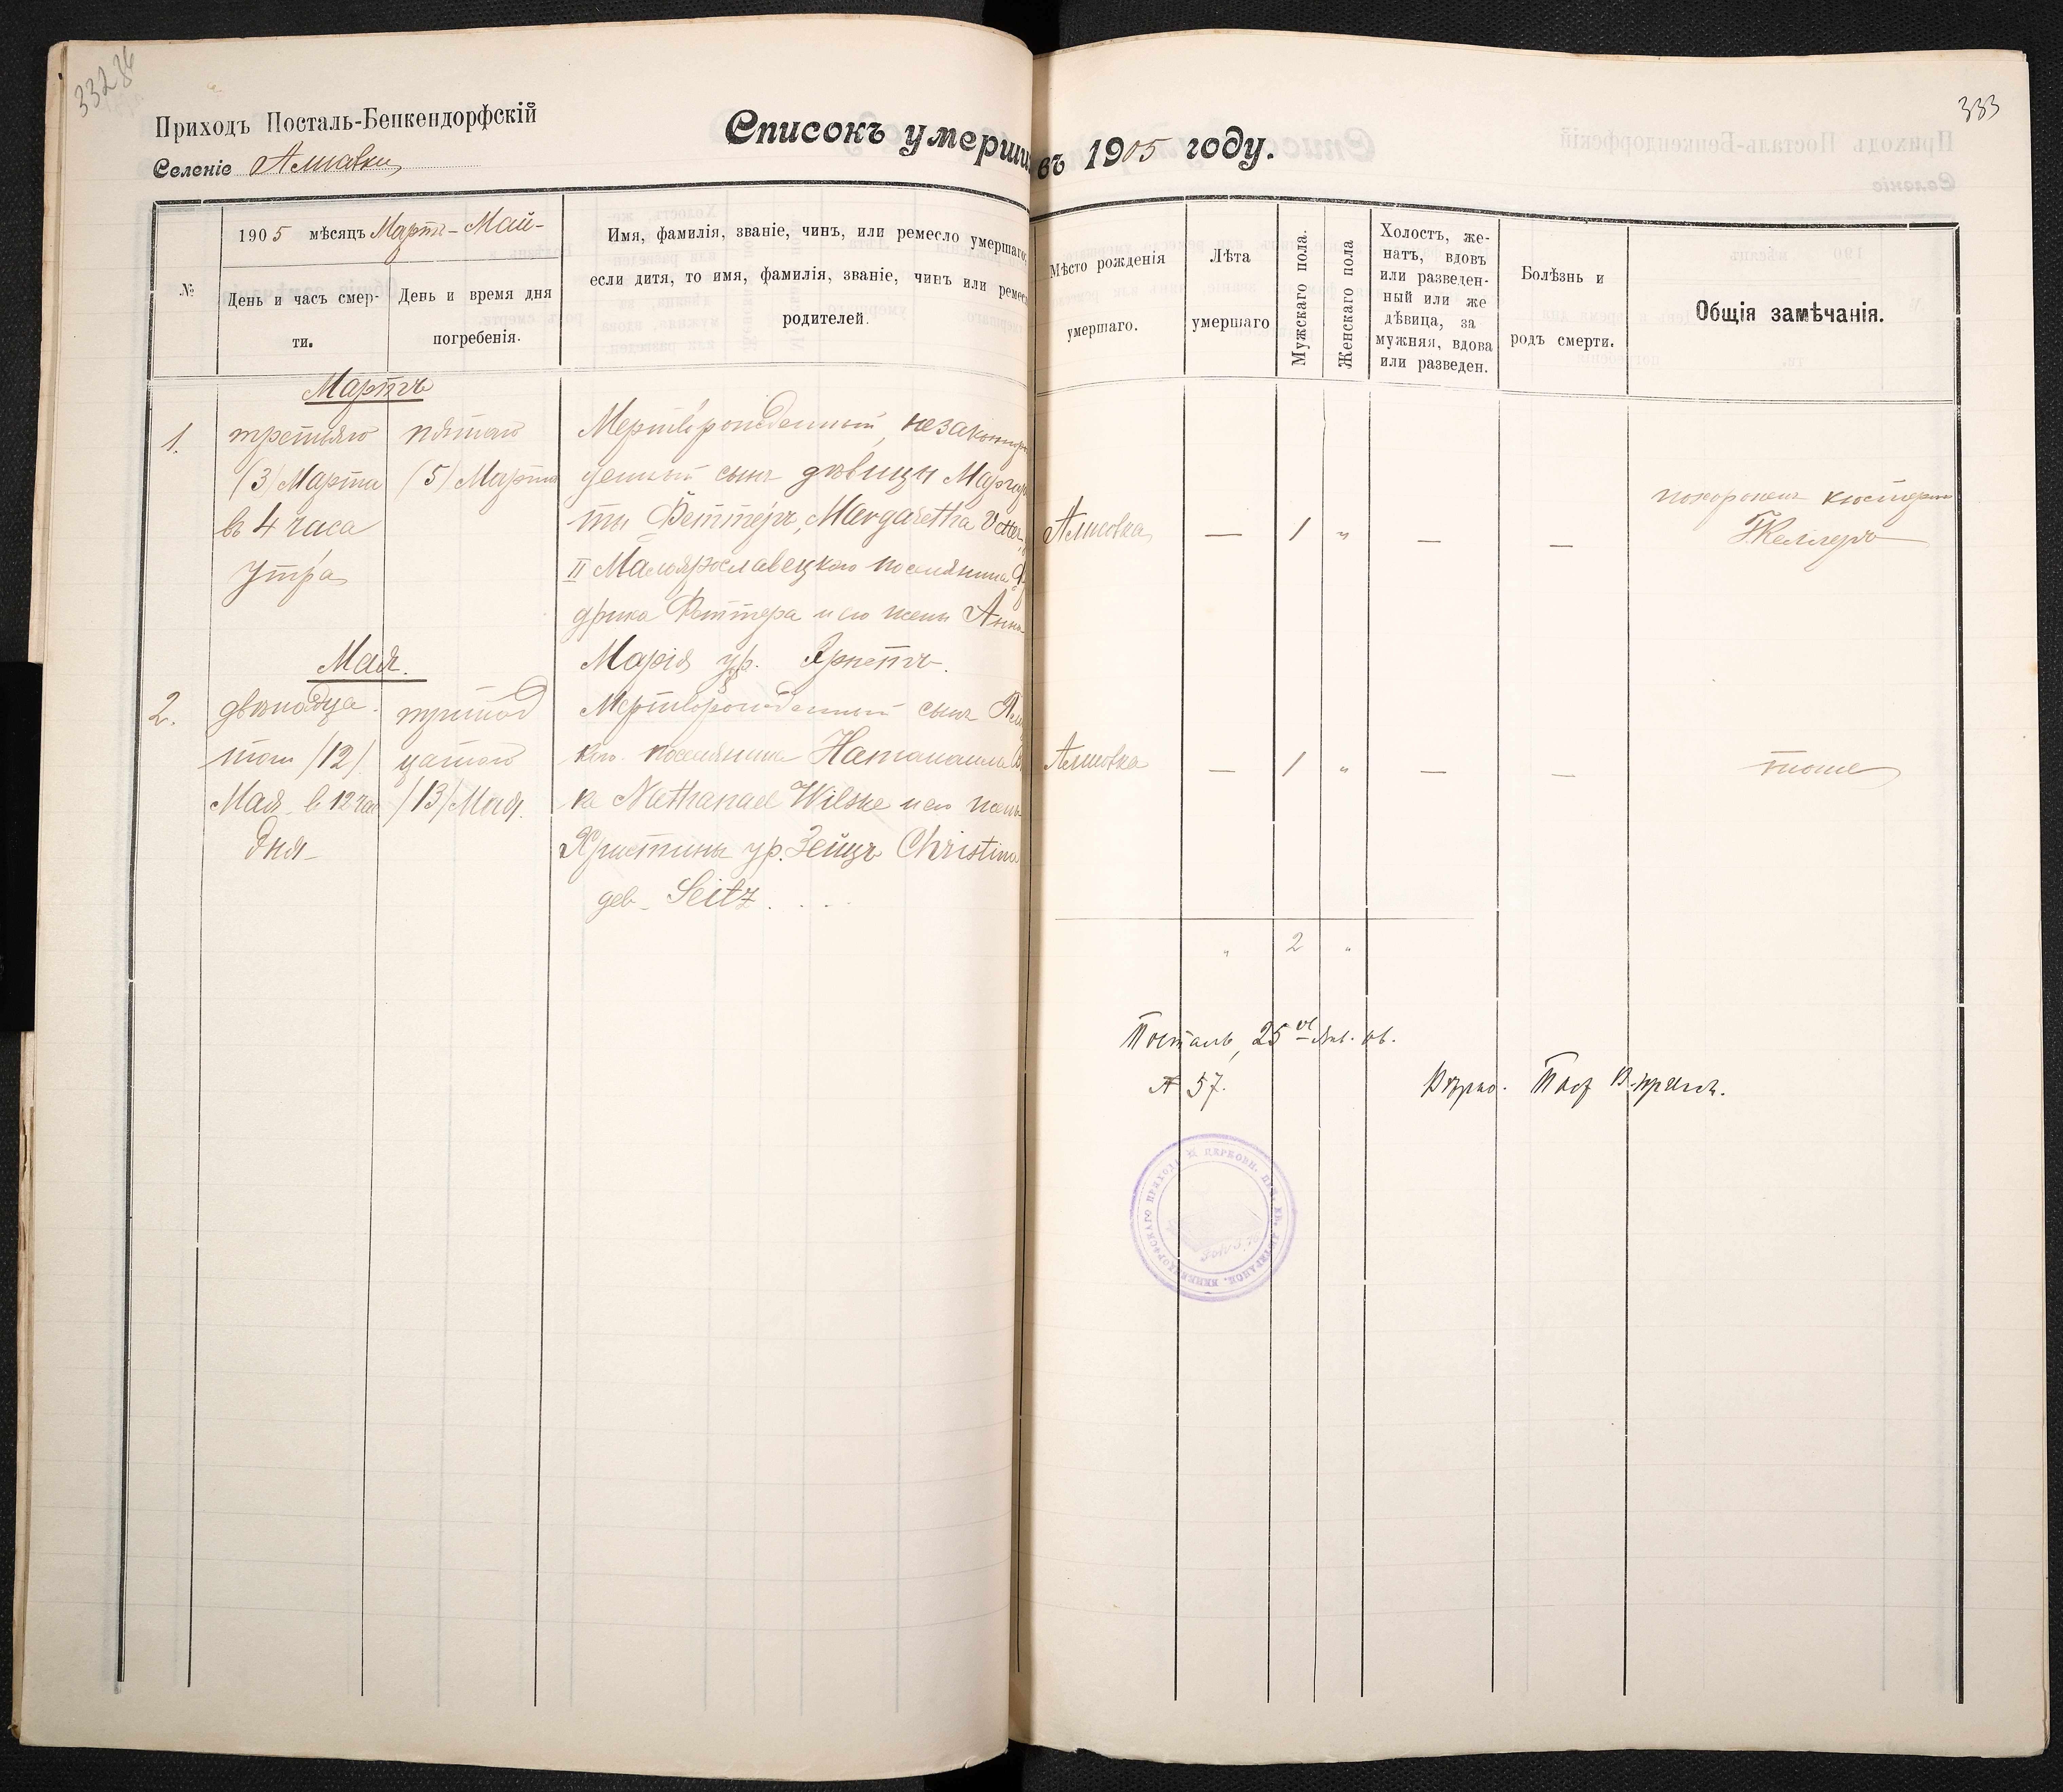 332
Приходъ Посталь-Бенкендорфскій
Селеніе Алисовка
Списокъ умерши
въ 1905 году.
333
№
1905 мѣсяцъ Мартъ - Май -
День и часъ смер-
ти.
День и время дня
погребенія.
Имя, фамилія, званіе, чинъ, или ремесло умершаго,
если дитя, то имя, фамилія, званіе, чинъ или ремес
родителей.
Мѣсто рожденія
умершаго.
Лѣта
умершаго
Мужскаго пола.
Женскаго пола
Холостъ, же-
натъ, вдовъ
или разведен-
ный или же
дѣвица, за
мужняя, вдова
или разведен.
Болѣзнь и
родъ смерти.
Общія замѣчанія.
Мартъ
1.
третьяго
(3) Марта
въ 4 часа
утра
пятаго
(5) Марта
Мертворожденный, незаконнро
денный сынъ дѣвицы Маргар
ты Феттеръ, Margaretha Vetter,
II Малоярославецкаго поселянина
дриха Феттера и его жены Анна
Марія ур.
Алисовка — 1 " — —
похороненъ кюстеромъ
Г. Келлеръ
Мая.
2.
двѣнадца-
таго /12/
Мая в 12 час
дня -
тринад
цатаго
/13/ Мая.
Мертворожденный сынъ
каго поселянина Натанаила
ке Nathanael Wilske и его жены
Христины ур. Зейцъ Christina
geb. Seitz . . . .
Алисовка — 1 " — —
тоже
" 2 "
Посталь, 25 Янв. 06.
№ 57.
Вѣрно.